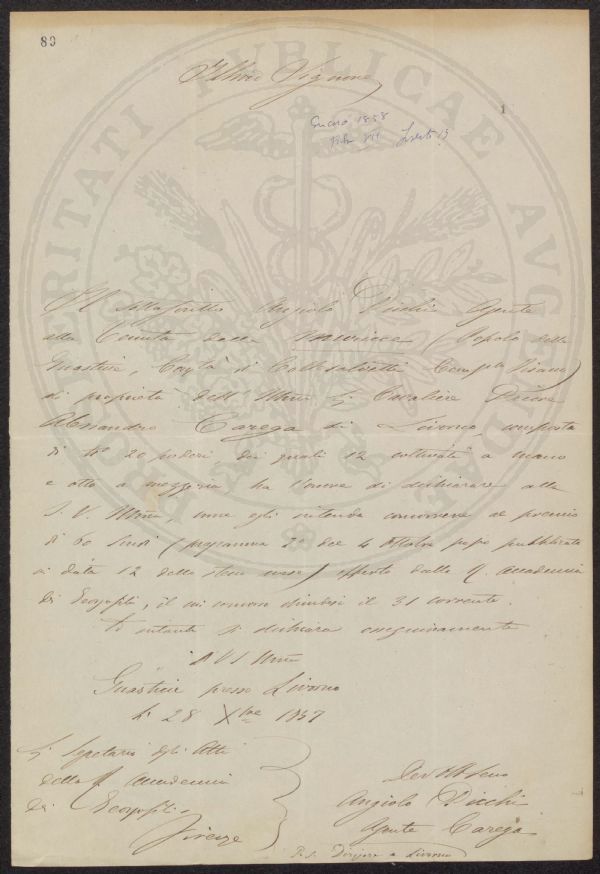 83
Ill.mo Signore
1
Gennaio 1858
Inserto 13
PROSPERITATI PUBLICAE AUGENDAE
Il sottoscritto Angiolo Picchi Agente
alla Tenuta della (Popolo della
Guasticce, Com.tà di Collesalvetti
di proprietà dell' Ill.mo Sig. Cavaliere Priore
Alessandro Carega di Livorno, composta
di N° 20 poderi dei quali 12 coltivati a mano
e otto a mezzeria ha l'onore di dichiarare alla
S. V. Ill.ma, come egli intenda concorrere al premio
di 60 (programma 2° del 4 Ottobre pubblicato
in data 12 dello stesso mese) offerto dalla R. Accademia
dei Georgofili, il cui concorso chiudesi il 31 corrente.
E intanto si dichiara ossequiosamente
D V S Ill.ma
Guasticce presso Livorno
li 28 Xbre 1857
Sig. Segretario degli Atti
della R. Accademia
dei Georgofili
Firenze
Angiolo Picchi
Agente Carega
P.S. Dirigere a Livorno